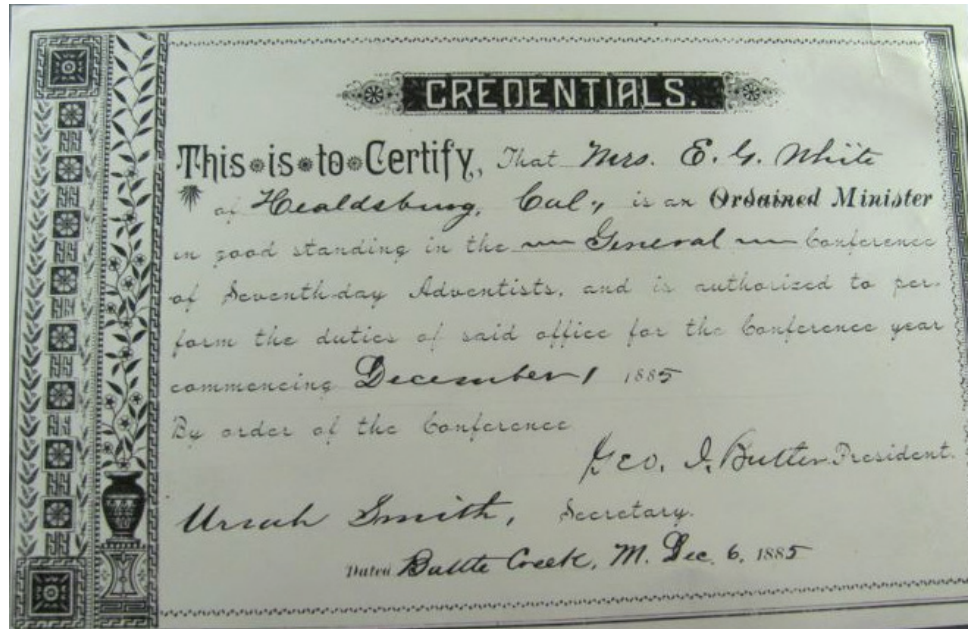 CREDENTIALS.
This is to Certify, That Mrs. E. G. White
of Healdsburg, Cal., is an Ordained Minister
in good standing in the General Conference
of Seventh-day Adventists, and is authorized to per-
form the duties of said office for the Conference year
commencing December 1 1885
By order of the Conference
Geo. I. Butler President.
Uriah Smith, Secretary.
Dated Battle Creek, M. Dec. 6, 1885